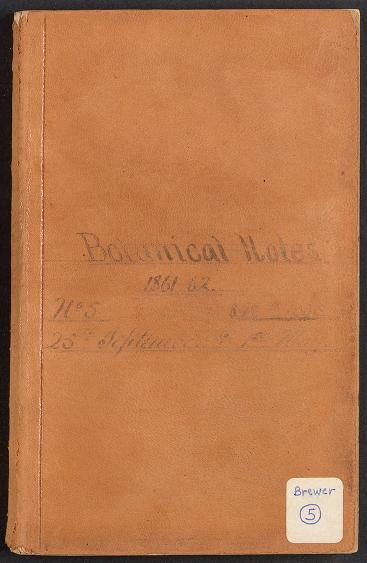 Botanical Notes
1861 62.
No 5
25th September 1st May.
Brewer
5